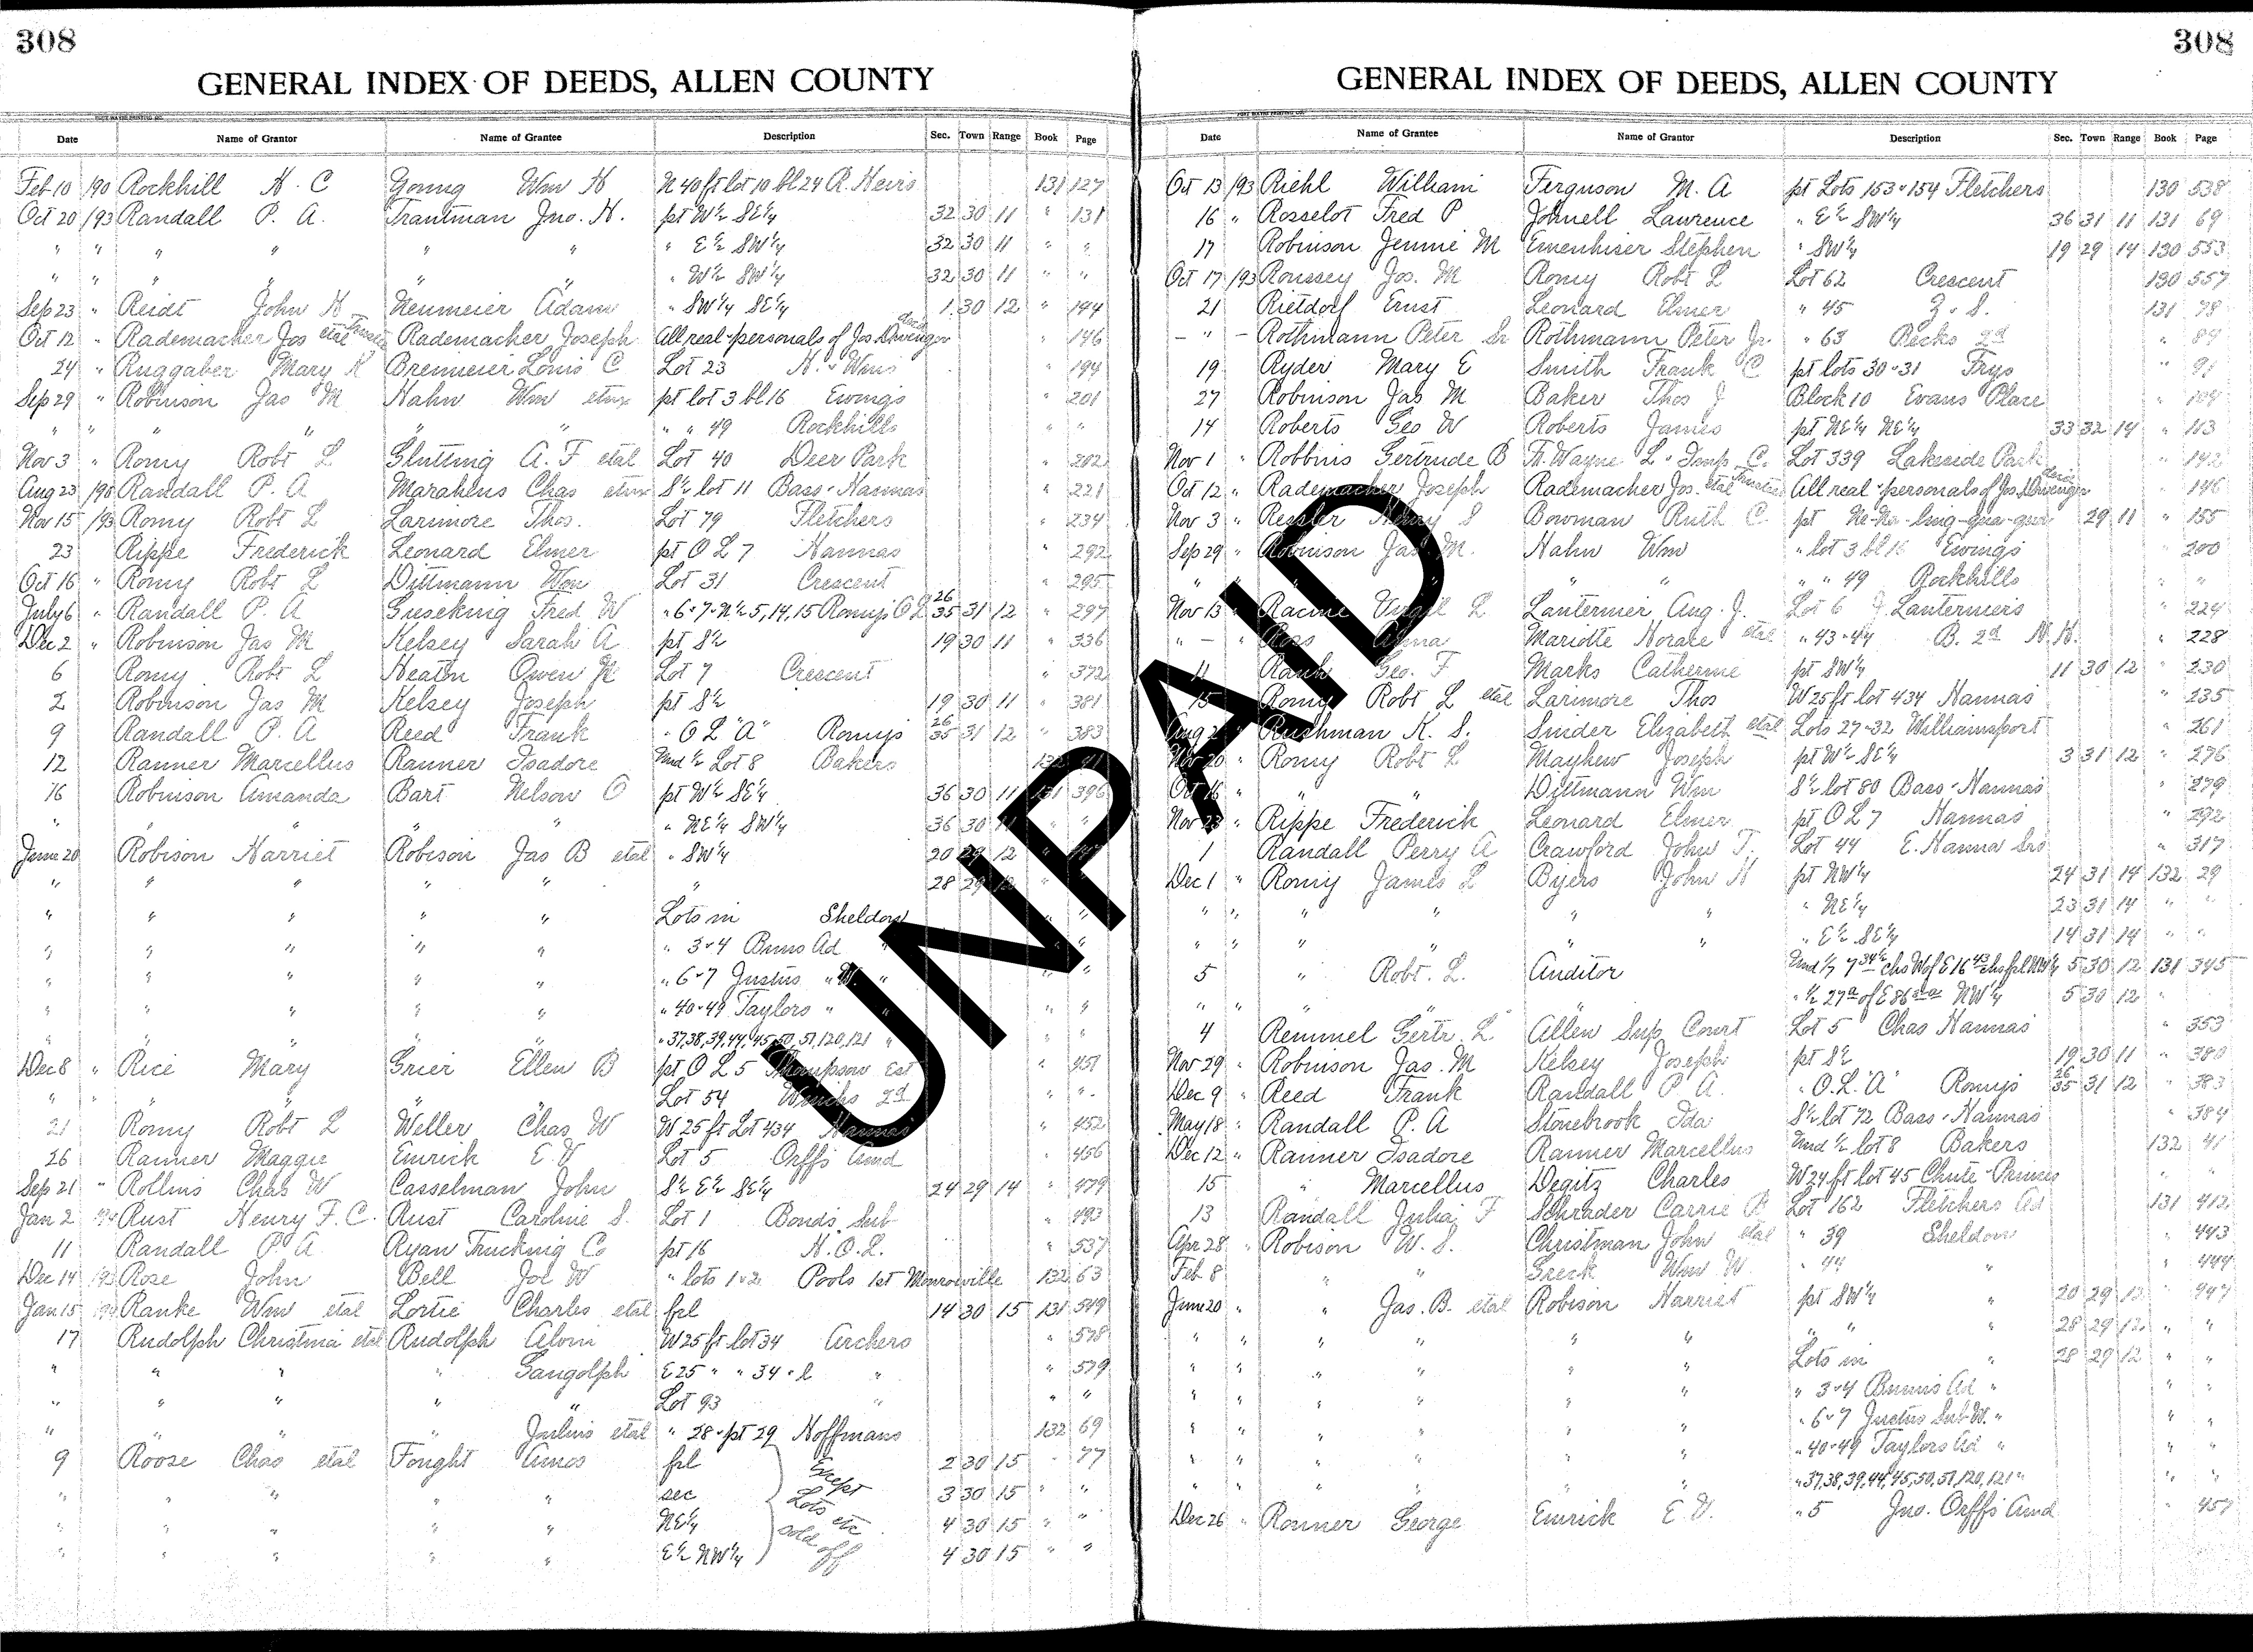 308
GENERAL INDEX OF DEEDS, ALLEN COUNTY
Date Name of Grantor Name of Grantee Description Sec. Town Range Book Page
Feb 10 /90 Rockhill H. C Young Wm H N 40 ft lot 10 bl 24 R. Heirs 131 127
Oct 20 /93 Randall P. A. Trautman Jno. H. pt W½ SE¼ 32 30 11 " 131
" " " " " " " E½ SW¼ 32 30 11 " "
" " " " " " " W½ SW¼ 32 30 11 " "
Sep 23 " Reidt John H Neumeier Adam " SW¼ SE¼ 1 30 12 " 144
Oct 12 " Rademacher Jos etal Trustees Rademacher Joseph All real & personals of Jos. Dwenger decd " 146
24 " Ruggaber Mary K Breimeier Louis C Lot 23 H. & Wms " 194
Sep 29 " Robinson Jas M Hahn Wm etux pt lot 3 bl 16 Ewings " 201
" " " " " " " " 49 Rockhills " "
Nov 3 " Romy Robt L Glutting A. F etal Lot 40 Deer Park " 202
Aug 23 /90 Randall P. A Marahlus Chas etux S½ lot 11 Bass & Hannas " 221
Nov 15 /93 Romy Robt L Larimore Thos. Lot 79 Fletchers " 234
23 Rippe Frederick Leonard Elmer pt O L 7 Hannas " 292
Oct 16 " Romy Robt L Dittmann Wm Lot 31 Crescent " 295
July 6 " Randall P. A Gieseking Fred W " 6 & 7 & N½ 5, 14, 15 Romys O L 26 35 31 12 " 297
Dec 2 " Robinson Jas M Kelsey Sarah A pt S½ 19 30 11 " 336
6 Romy Robt L Heaton Owen N Lot 7 Crescent " 372
2 Robinson Jas M Kelsey Joseph pt S½ 19 30 11 " 381
9 Randall P. A Reed Frank " O L "A" Romys 26 35 31 12 " 383
12 Ranner Marcellus Ranner Isadore Und ½ Lot 8 Bakers 132 41
16 Robinson Amanda Bart Nelson O pt W½ SE¼ 36 30 11 131 396
" " " " " " NE¼ SW¼ 36 30 11 " "
June 20 Robison Harriet Robison Jas B etal " SW¼ 20 29 12 " 447
" " " " " " 28 29 12 "
" " " " " Lots in Sheldon " "
" " " " " " 3 & 4 Bunns Ad " "
" " " " " " 6 & 7 Justus " W. " " "
" " " " " " 40 & 49 Taylors " " " "
" " " " " " 37, 38, 39, 44, 45, 50, 51, 120, 121 " " "
Dec 8 " Rice Mary Grier Ellen B pt O L 5 Thompson Est " 451
" " " " " Lot 54 Wunchs 2d " "
21 Romy Robt L Weller Chas W W 25 ft Lot 434 Hannas " 452
26 Ranner Maggie Emrick E V Lot 5 Orffs Amd " 456
Sep 21 " Rollins Chas W Casselman John S½ E½ SE¼ 24 29 14 " 479
Jan 2 /94 Rust Henry F. C. Rust Caroline S. Lot 1 Bonds Sub " 493
11 Randall P. A Ryan Trucking Co pt 16 H. O. L. " 537
Dec 14 /93 Rose John Bell Jol W " lots 1 & 2 Pools 1st Monroeville 132 63
Jan 15 /94 Ranke Wm etal Lortie Charles etal frl 14 30 15 131 549
17 Rudolph Christina etal Rudolph Alvin W 25 ft lot 34 Archers " 578
" " " " Gangolph E 25 " " 34 & l " " 579
" " " " " Lot 93 " " "
" " " Julius etal " 28 & pt 29 Hoffmans 132 69
9 Roose Chas etal Fought Amos frl Except 2 30 15 " 77
" " " " " sec Lots 3 30 15 " "
" " " " " NE¼ etc sold 4 30 15 " "
" " " " " E½ NW¼ off 4 30 15 " "
308
GENERAL INDEX OF DEEDS, ALLEN COUNTY
Date Name of Grantee Name of Grantor Description Sec. Town Range Book Page
Oct 13 /93 Riehl William Ferguson M. A pt Lots 153 & 154 Fletchers 130 538
16 " Rosselot Fred P Johnell Lawrence " E½ SW¼ 36 31 11 131 69
17 Robinson Jennie M Emenhiser Stephen " SW¼ 19 29 14 130 553
Oct 17 /93 Roussey Jos. M Romy Robt L Lot 62 Crescent 130 557
21 Rietdorf Ernst Leonard Elmer " 45 J. S. 131 78
— " — Rothmann Peter Sr Rothmann Peter Jr. " 63 Recks 2d " 89
19 Ryder Mary E Smith Frank C pt lots 30 & 31 Frys " 91
27 Robinson Jas M Baker Thos J Block 10 Evans Place " 104
14 Roberts Geo W Roberts James pt NE¼ NE¼ 33 32 14 " 113
Nov 1 " Robbins Gertrude B Ft. Wayne L & Imp C. Lot 339 Lakeside Park " 142
Oct 12 " Rademacher Joseph Rademacher Jos. etal Trustees All real & personals of Jos. Dwenger decd " 146
Nov 3 " Ressler Henry S Bowman Ruth C. pt Ne-Ne-ling-gua-gua 29 11 " 155
Sep 29 " Robinson Jas. M. Hahn Wm " lot 3 bl 16 Ewings " 200
" " " " " " 49 Rockhills " "
Nov 13 " Racine Virgil L Lanternier Aug. J. Lot 6 J. Lanterniers " 224
" — " Ross Anna Mariotte Horace etal " 43 & 44 B. 2d N. H. " 228
11 Rank Geo. F Marks Catherine pt SW¼ 11 30 12 " 230
15 Romy Robt L etal Larimore Thos W 25 ft lot 434 Hannas " 235
Aug 2 Rushman K. S. Snider Elizabeth etal Lots 27 & 32 Williamsport " 261
Nov 20 " Romy Robt L Mayhew Joseph pt W½ SE¼ 3 31 12 " 276
Oct 16 " " " Dittmann Wm S½ lot 80 Bass & Hannas " 279
Nov 23 " Rippe Frederick Leonard Elmer pt O L 7 Hannas " 292
1 Randall Perry A Crawford John T. Lot 44 E. Hanna Srs " 317
Dec 1 " Romy James L Byers John H pt NW¼ 24 31 14 132 29
" " " " " " " NE¼ 23 31 14 " "
" " " " " " " E½ SE¼ 14 31 14 " "
5 " Robt. L. Auditor 5 30 12 131 345
" " " " " ½ 27a of E 86 NW¼ 5 30 12 "
4 Remmel Gertr. L Allen Sup Court Lot 5 Chas Hannas " 353
Nov 29 " Robinson Jas. M Kelsey Joseph pt S½ 19 30 11 " 380
Dec 9 " Reed Frank Randall P A. " O. L. "A" Romys 26 35 31 12 " 383
May 18 " Randall P. A Stonebrook Ida S½ lot 72 Bass & Hannas " 384
Dec 12 " Ranner Isadore Ranner Marcellus Und ½ lot 8 Bakers 132 41
15 " Marcellus Degitz Charles W 24 ft lot 45 Chute & Princes " "
13 Randall Julia F Schrader Carrie B Lot 162 Fletchers Ad 131 412
Apr 28 " Robison W. S. Christman John etal " 39 Sheldon " 443
Feb 8 " " Greek Wm W. " 44 " " 444
June 20 " " Jas. B. etal Robison Harriet pt SW¼ " 20 29 12 " 447
" " " " " " " " " 28 29 12 " "
" " " " " " Lots in " 28 29 12 " "
" " " " " " 3 & 4 Bunns Ad " " "
" " " " " " 6 & 7 Justus Sub W. " " "
" " " " " " 40 & 49 Taylors Ad " " "
" " " " " " 37, 38, 39, 44, 45, 50, 51, 120, 121 " " "
Dec 26 " Ronner George Emrick E. V. " 5 Jno. Orffs Amd " 457
UNPAID